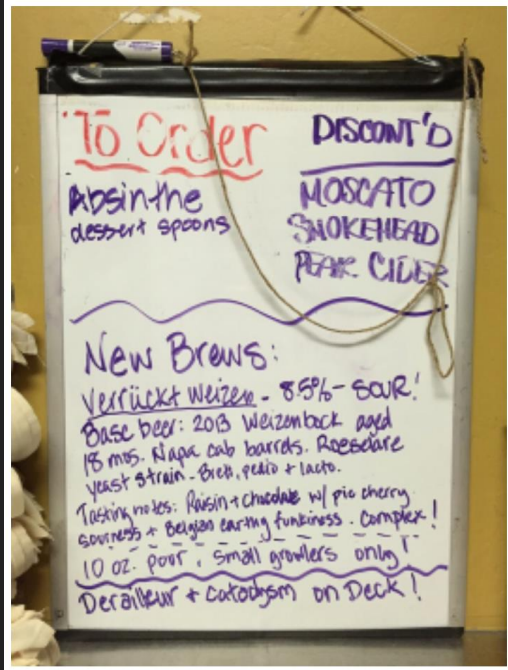 To Order
Absinthe
dessert spoons
DISCONT'D
MOSCATO
SMOKEHEAD
PEAR CIDER
New Brews:
Verrückt Weizen - 8.5% - SOUR!
Base beer: 2013 Weizenbock aged
18 mos. Napa cab barrels. Roeselare
yeast strain - Brett, pedio + lacto.
Tasting notes: Raisin + chocolate w/ pie cherry
sourness + Belgian earthy funkiness. Complex!
10 oz. poor, small growlers only!
Derailleur + Cataclysm on Deck!